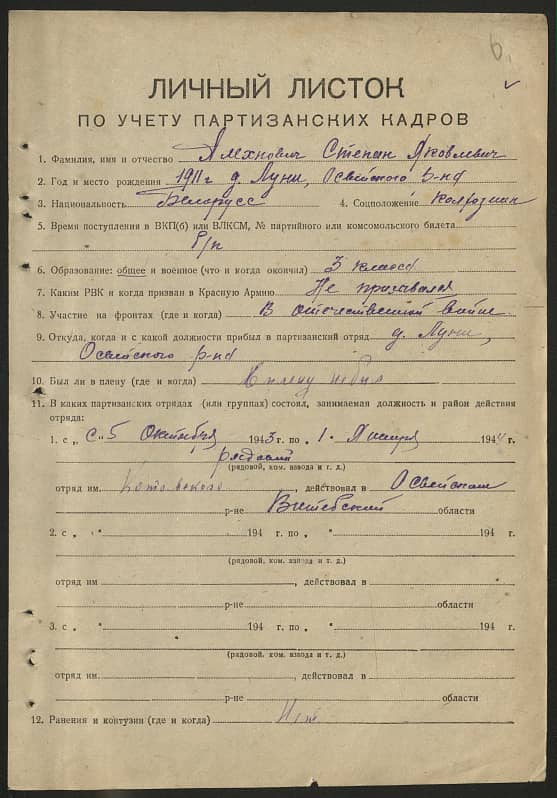 6.
ЛИЧНЫЙ ЛИСТОК
ПО УЧЕТУ ПАРТИЗАНСКИХ КАДРОВ
1. Фамилия, имя и отчество Алехнович Степан Яковлевич
2. Год и место рождения 1911 г д. Луни, Освейского р-на
3. Национальность Белорусс 4. Соцположение колхозник
5. Время поступления в ВКП(б) или ВЛКСМ, № партийного или комсомольского билета
б/п
6. Образование: общее и военное (что и когда окончил) 3 класса
7. Каким РВК и когда призван в Красную Армию Не призывался
8. Участие на фронтах (где и когда) В отечественной войне
9. Откуда, когда и с какой должности прибыл в партизанский отряд д. Луни,
Освейского р-на
10. Был ли в плену (где и когда) В плену не был
11. В каких партизанских отрядах (или группах) состоял, занимаемая должность и район действия
отряда:
1. с „ С „ 5 Октября 1943 г. по „ 1 " Января 1944 г.
рядовой
(рядовой, ком. взвода и т. д.)
отряд им Котовского , действовал в Освейском
р-не Витебской области
2. с „ " 194 г. по „ " 194 г.
(рядовой, ком. взвода и т. д.)
отряд им , действовал в
р-не области
3. с „ " 194 г. по „ " 194 г.
(рядовой, ком. взвода и т. д.)
отряд им. , действовал в
р-не области
12. Ранения и контузии (где и когда) Нет